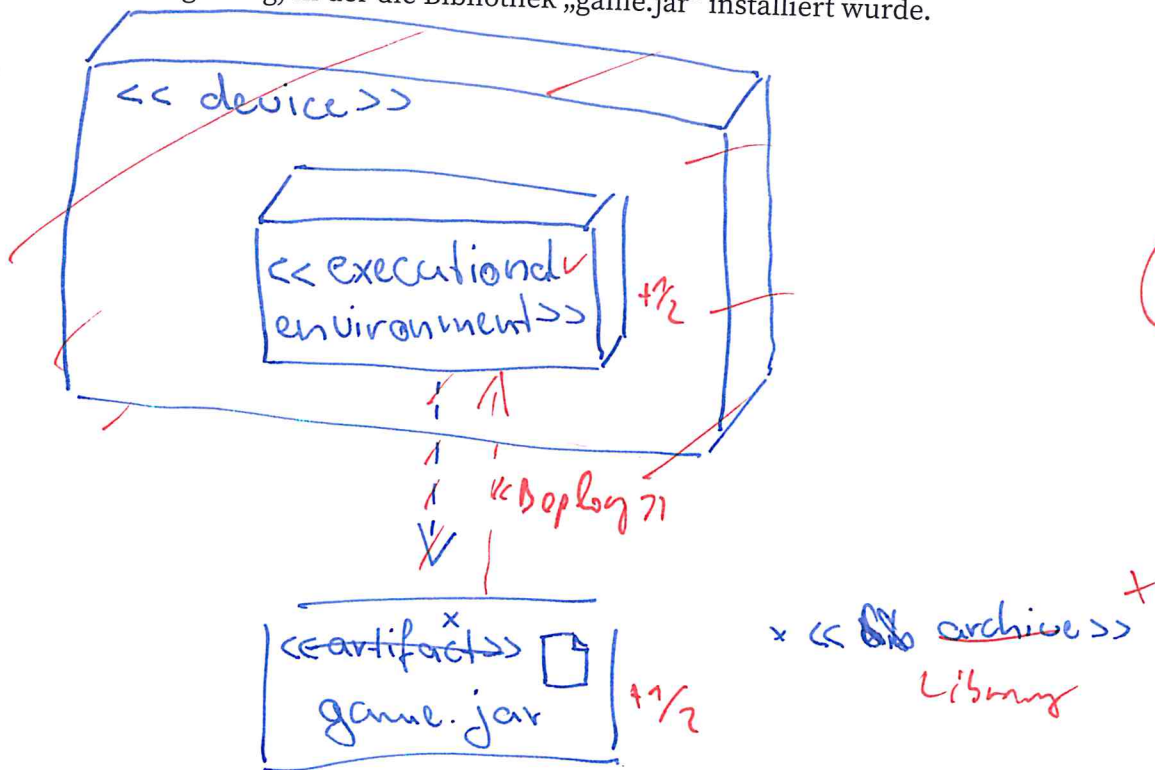 der die Bibliothek „game.jar“ installiert wurde.
<< device>>
<< executional
environment>>
+1/2
«Deploy»
<<artifact>> x
game.jar
+1/2
x << archive>> +
Library